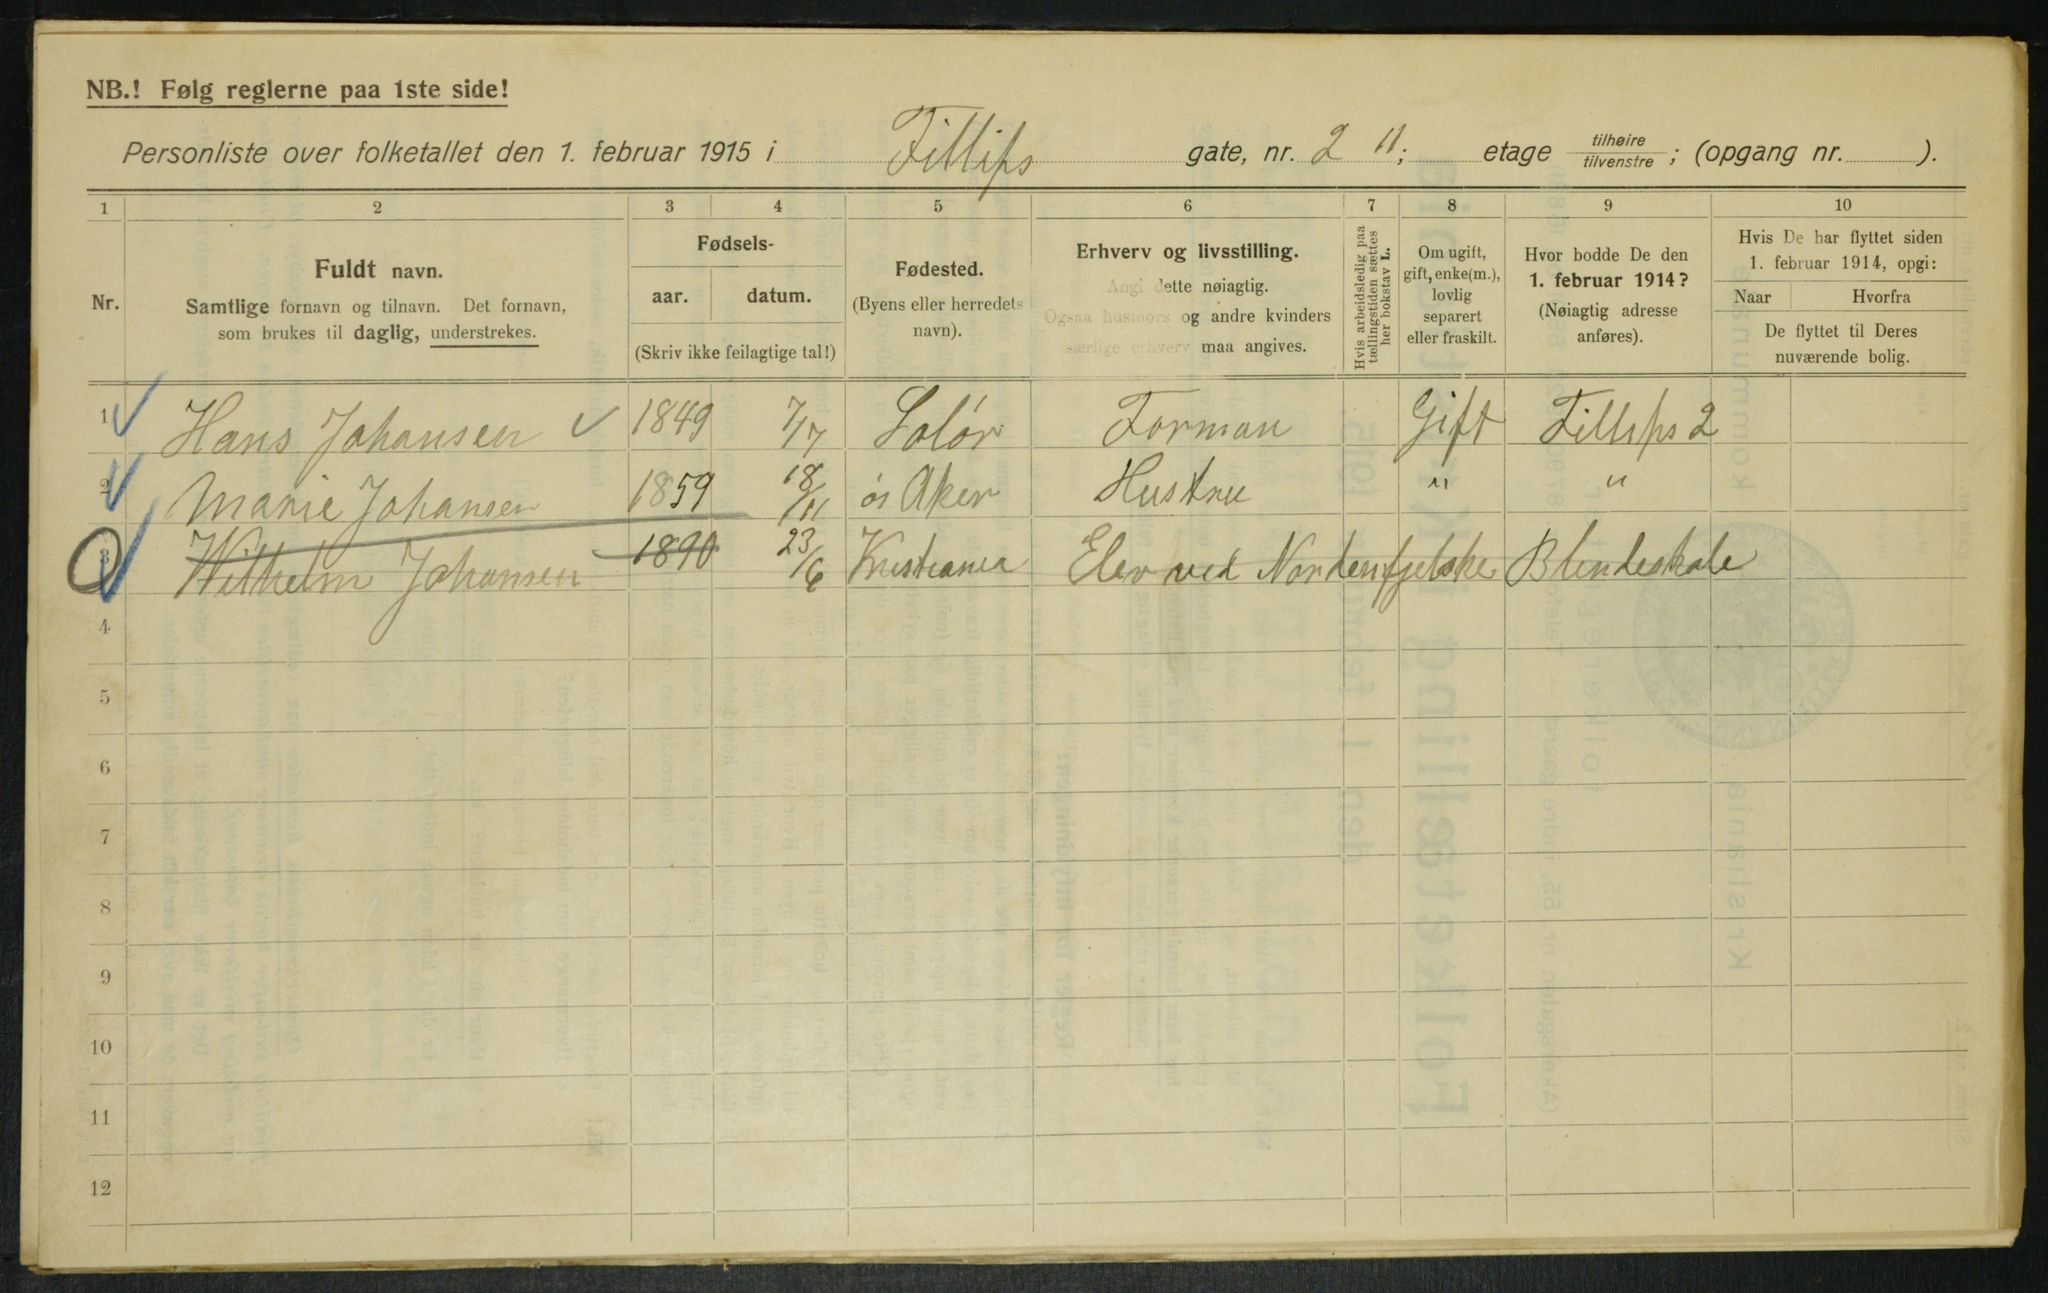 NB.! Følg reglerne paa 1ste side!
Personliste over folketallet den 1. februar 1915 i Fillips gate, nr. 2 II; etage tilhøire/tilvenstre; (opgang nr. ).
1 2 3 4 5 6 7 8 9 10
Nr.
Fuldt navn.
Samtlige fornavn og tilnavn. Det fornavn,
som brukes til daglig, understrekes.
Fødsels-
aar. datum.
(Skriv ikke feilagtige tal!)
Fødested.
(Byens eller herredets
navn).
Erhverv og livsstilling.
Angi dette nøiagtig.
Ogsaa husmors og andre kvinders
særlige erhverv maa angives.
Hvis arbeidsledig paa
tællingstiden sættes
her bokstav L.
Om ugift,
gift, enke(m.),
lovlig
separert
eller fraskilt.
Hvor bodde De den
1. februar 1914?
(Nøiagtig adresse
anføres).
Hvis De har flyttet siden
1. februar 1914, opgi:
Naar Hvorfra
De flyttet til Deres
nuværende bolig.
1 Hans Johansen 1849 7/7 Solør Forman Gift Fillips 2
2 Marie Johansen 1859 18/11 ø Aker Hustru " "
3 Wilhelm Johansen 1890 23/6 Kristiania Elev ved Nordenfjelske Blindeskole
4
5
6
7
8
9
10
11
12